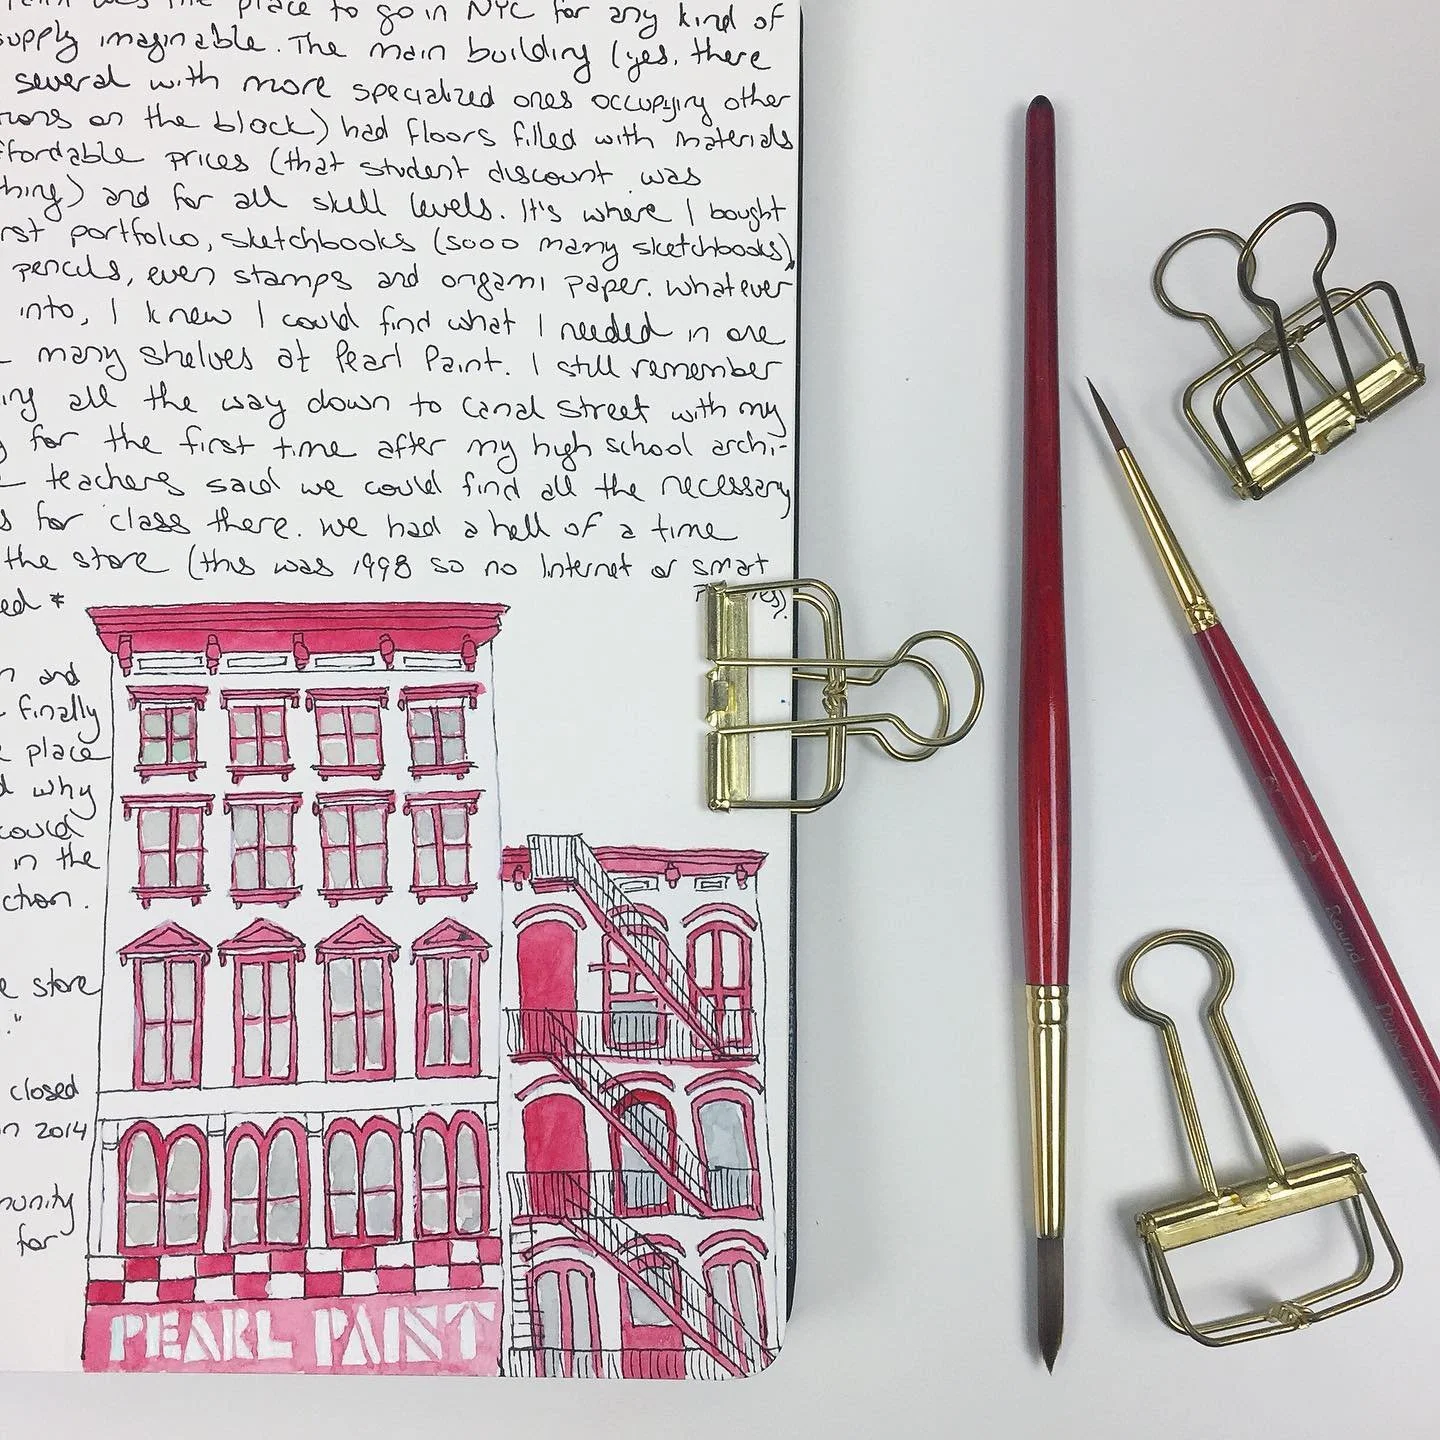 was the place to go in NYC for any kind of
supply imaginable. The main building (yes, there
several with more specialized ones occupying other
on the block) had floors filled with materials
ffordable prices (that student discount was
thing) and for all skill levels. It's where I bought
rst portfolio, sketchbooks (sooo many sketchbooks),
pencils, even stamps and origami paper. Whatever
into, I knew I could find what I needed in one
many shelves at Pearl Paint. I still remember
ing all the way down to Canal Street with my
for the first time after my high school archi-
teachers said we could find all the necessary
s for class there. We had a hell of a time
the store (this was 1998 so no Internet or smart
ed *
n and
finally
e place
d why
could
in the
ction.
e store
."
closed
n 2014
munity
for
PEARL PAINT
Round